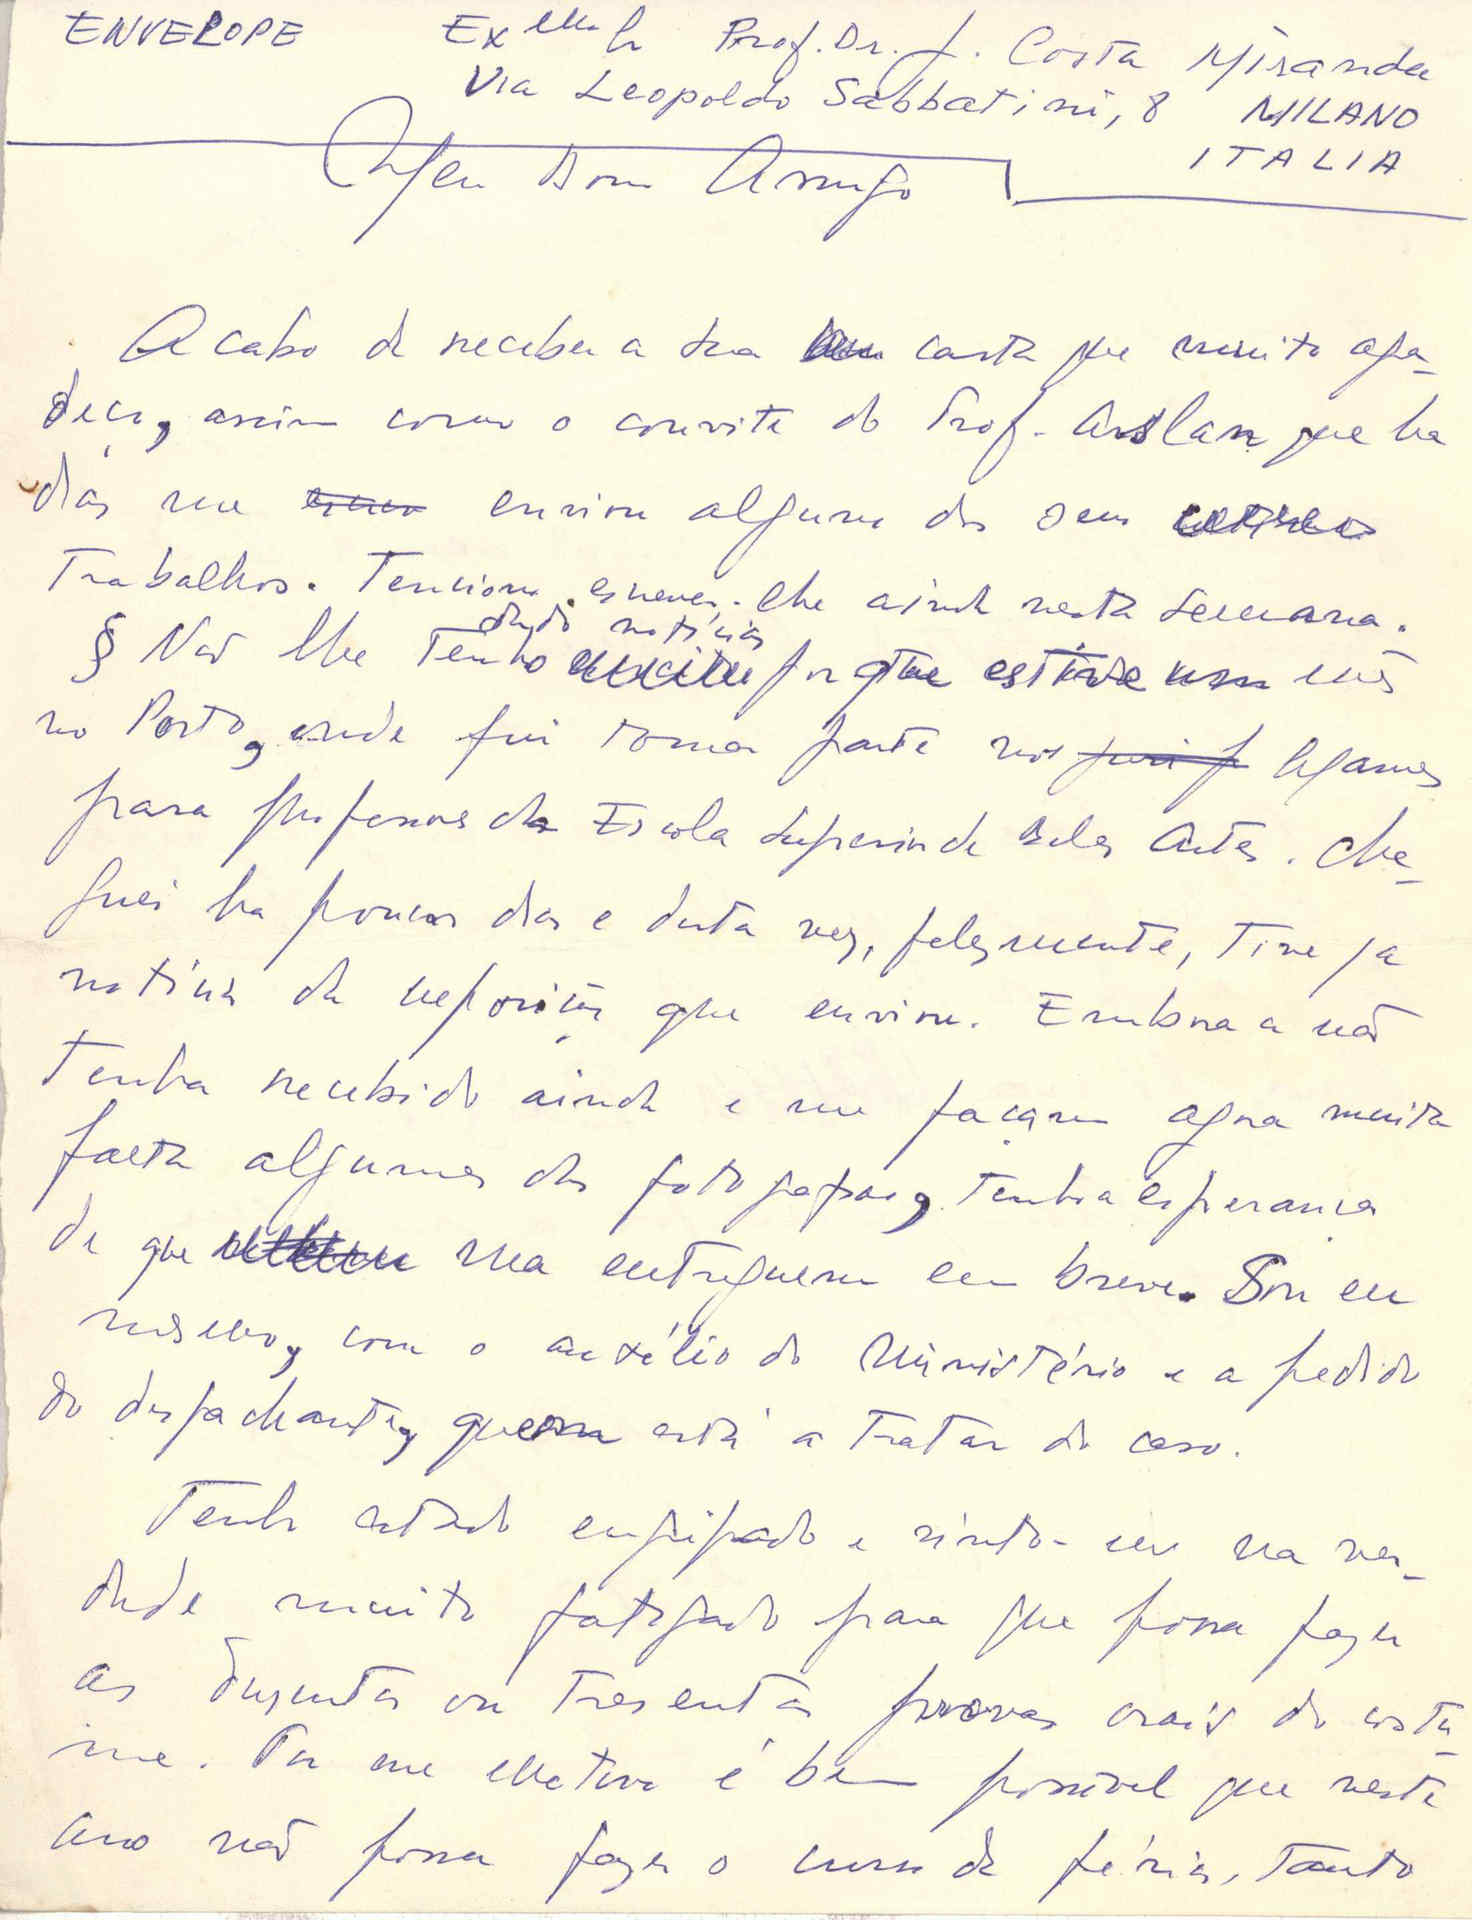 ENVELOPE Exmo Sr Prof. Dr. J. Costa Miranda
Via Leopoldo Sabbatini, 8 MILANO
ITALIA
Meu Bom Amigo
Acabo de receber a sua carta que muito agra-
deço, assim como o convite do Prof. Arslan que ha
dias me enviou algum dos seus
Trabalhos. Tenciono escrever-lhe ainda nesta semana.
dado notícias
§ Não lhe Tenho porque estive um mês
no Porto, onde fui tomar parte nos exames
para professores da Escola Superior de Belas Artes. Che-
guei ha poucos dias e desta vez, felizmente, Tive ja
notícias da reposição que enviou. Embora a não
Tenha recebido ainda e me façam agora muita
falta algumas das fotografias, Tenho a esperança
de que ma entreguem em breve. Sou eu
mesmo, com o auxílio do Ministério e a pedido
do despachante, quem está a Tratar do caso.
Tenho estado engripado e sinto-me na ver-
dade muito fatigado para que possa fazer
as duzentas ou Tresentas provas orais do costu-
me. Por me é bem possível que neste
ano não possa fazer o curso de férias, Tanto